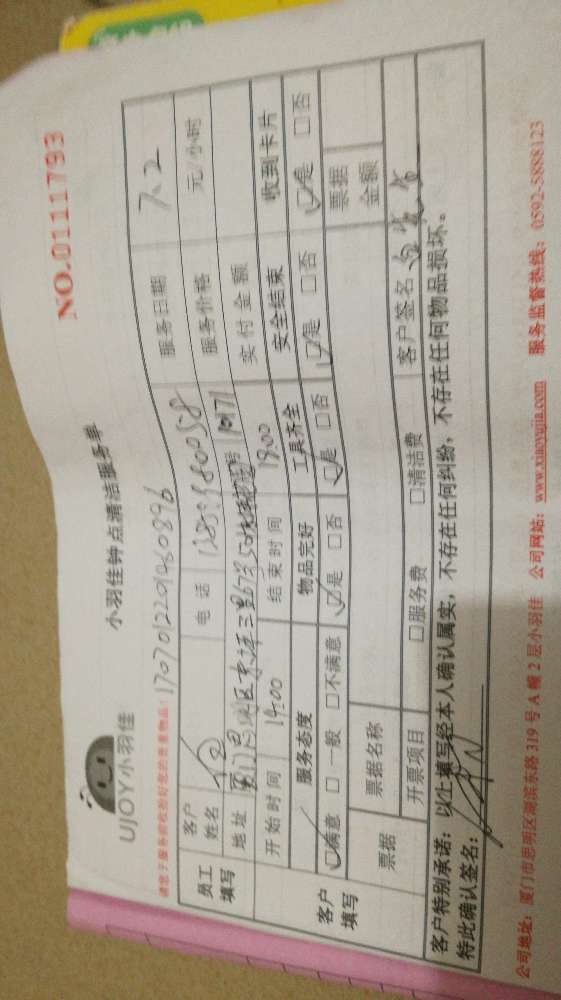 NO.0111793
UJOY小羽佳
小羽佳钟点清洁服务单
请您于服务前收拾好您的贵重物品!
1707012201460896
员工填写
客户姓名
服务日期
7.2
电话
服务价格
元/小时
地址
实付金额
开始时间
14:00
结束时间
19:00
安全结束
收到卡片
客户填写
服务态度
物品完好
工具齐全
☑满意 □一般 □不满意
☑是 □否
☑是 □否
☑是 □否
☑是 □否
票据
票据名称
票据金额
开票项目
□服务费 □清洁费
客户签名
客户特别承诺:以上填写经本人确认属实,不存在任何纠纷,不存在任何物品损坏。
特此确认签名:
公司地址:厦门市思明区湖滨东路319号A幢2层小羽佳 公司网站:www.xiaoyujia.com 服务监督热线:0592-5888123